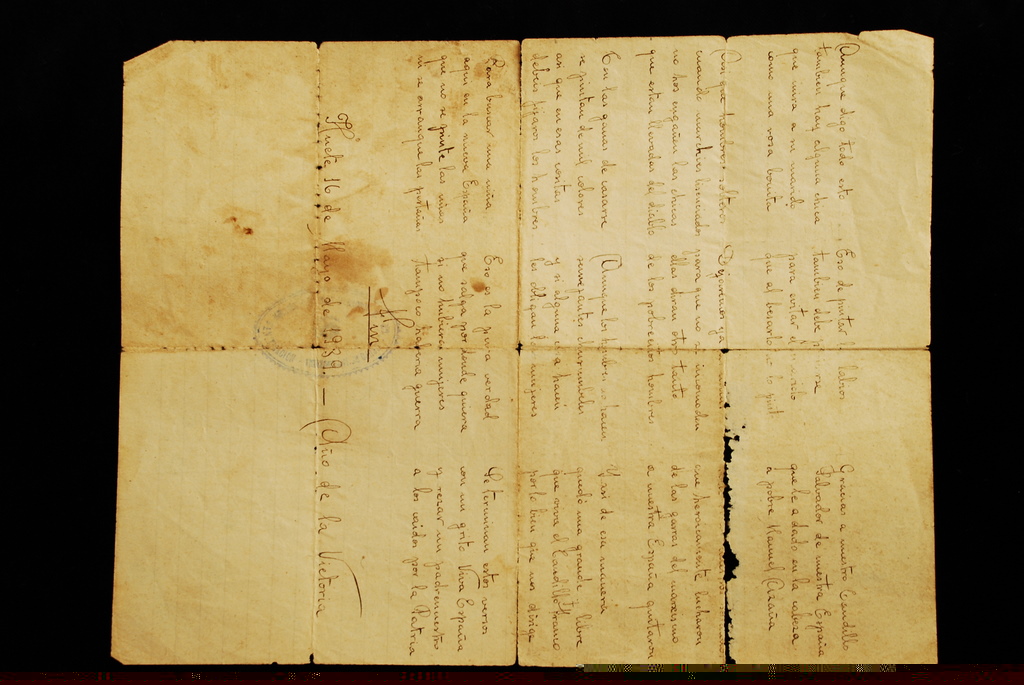 Aunque digo todo esto
tambien hay alguna chica
que mira a su marido
como una rosa bonita
Eso de pintar labios
tambien debe
para evitar el
que al besarlo se lo
Gracias a nuestro Caudillo
Salvador de nuestra España
que le a dado en la cabeza
a pobre Manuel Azaña
Asi que hombres solteros
cuando marcheis
no hos engañen las chicas
que estan llevadas del diablo
Dejaremos ya
para que no se incomoden
ellas diran otro tanto
de los pobrecitos hombres
que heroicamente lucharon
de las garras del marxismo
a nuestra España quitaron
En las de casarse
se pintan de mil colores
asi que en esas cositas
debeis fijaros los hombres
Aunque los hombres no hacen
semejantes churumbeles
y si alguna hacen
los obligan las mujeres
Y asi de esa manera
quedó una grande libre
que viva el Caudillo Franco
por lo bien que nos dirige
Para buscar una niña
aqui en la nueva España
que no se pinte las
ni se arranque las pestañas
Eso es la pura verdad
que salga por donde quiera
si no hubiera mujeres
tampoco habria guerra
Se terminan estos versos
con un grito Viva España
y rezar un padrenuestro
a los caidos por la Patria
Fin
Huete 16 de Mayo de 1.939 – Año de la Victoria